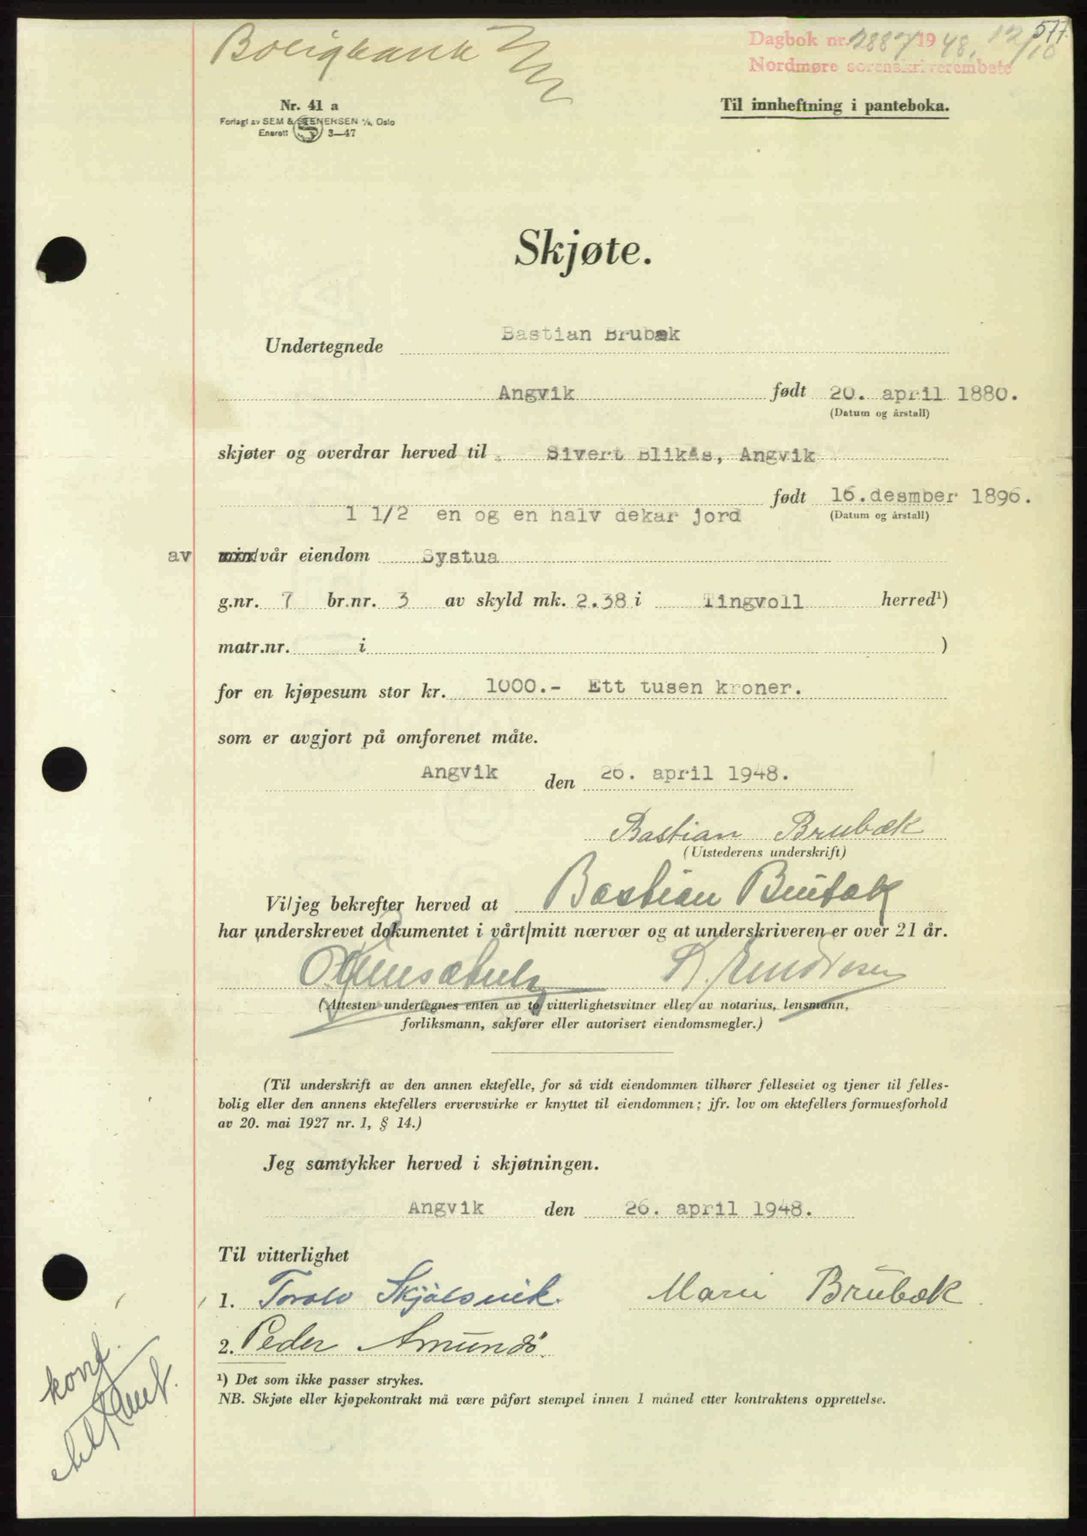 577
Boligbank
Dagbok nr. 2887 1948. 12/10
Nordmøre sorenskriverembete
Nr. 41 a
Til innheftning i panteboka.
Forlagt av SEM & STENERSEN A/S, Oslo
Enerett S 3—47
Skjøte.
Undertegnede Bastian Brubæk
Angvik født 20. april 1880.
(Datum og årstall)
skjøter og overdrar herved til Sivert Blikås, Angvik
født 16.desmber 1896.
1 1/2 en og en halv dekar jord (Datum og årstall)
av min/vår eiendom Systua
g.nr. 7 br.nr. 3 av skyld mk. 2.38 i Tingvoll herred¹)
matr.nr. i )
for en kjøpesum stor kr. 1000.- Ett tusen kroner.
som er avgjort på omforenet måte.
Angvik den 26. april 1948.
Bastian Brubæk
(Utstederens underskrift)
Vi/jeg bekrefter herved at Bastian Brubæk
har underskrevet dokumentet i vårt/mitt nærvær og at underskriveren er over 21 år.
(Attesten undertegnes enten av to vitterlighetsvitner eller av notarius, lensmann,
forliksmann, sakfører eller autorisert eiendomsmegler.)
(Til underskrift av den annen ektefelle, for så vidt eiendommen tilhører felleseiet og tjener til felles-
bolig eller den annens ektefellers ervervsvirke er knyttet til eiendommen; jfr. lov om ektefellers formuesforhold
av 20. mai 1927 nr. 1, § 14.)
Jeg samtykker herved i skjøtningen.
Angvik den 26. april 1948.
Til vitterlighet
1. Torolv Skjølsvik. Marie Brubæk
2. Peder Amundø
¹) Det som ikke passer strykes.
NB. Skjøte eller kjøpekontrakt må være påført stempel innen 1 måned etter kontraktens opprettelse.
konf.